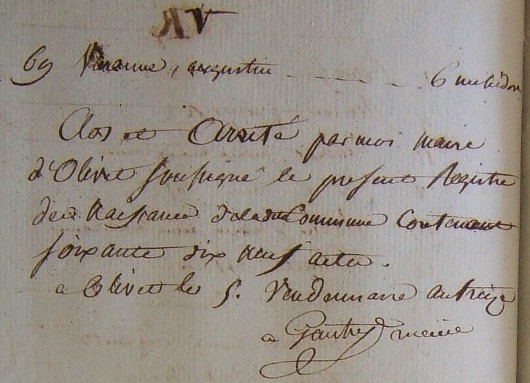 RV
69 Vivanne, augustin 6 messidor
Clos et Arreté par moi maire
d'Olivet soussigné le present Registre
des Naissance de ladte Commune Contenant
soixante dix neuf actes.
a Olivet le 5. Vendemiaire an treize
a Gautry maire